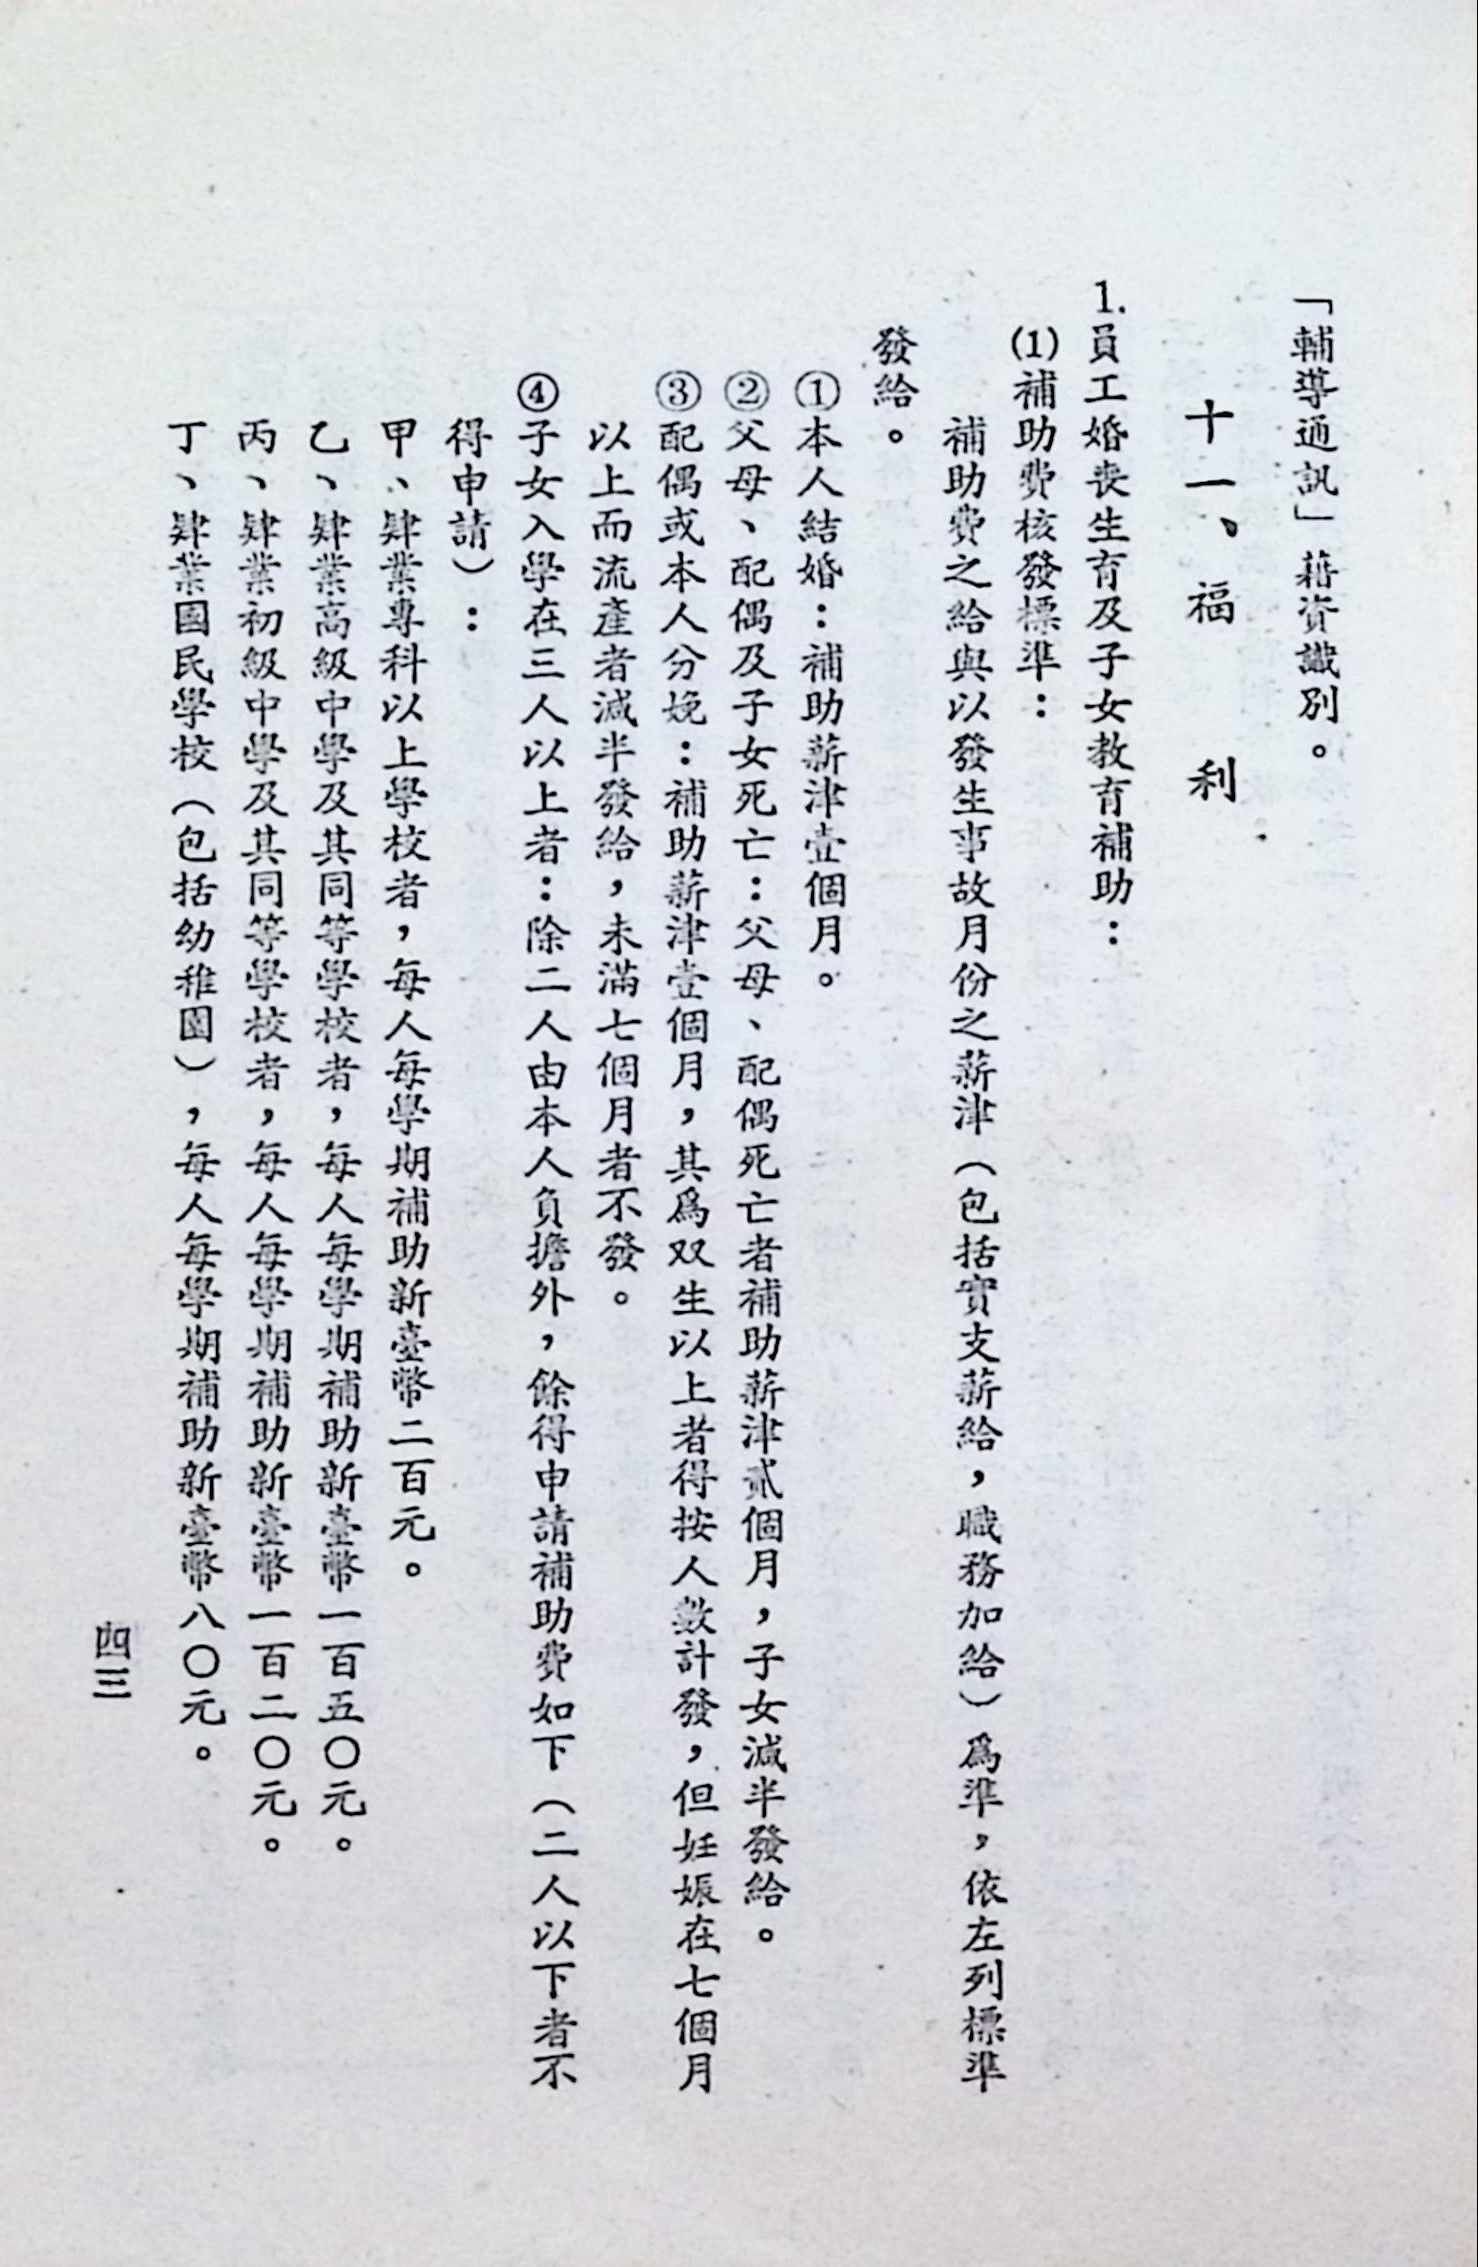 「輔導通訊」藉資識別。
十一、福利
1.員工婚喪生育及子女教育補助：
(1)補助費核發標準：
補助費之給與以發生事故月份之薪津（包括實支薪給，職務加給）爲準，依左列標準
發給。
①本人結婚：補助薪津壹個月。
②父母、配偶及子女死亡：父母、配偶死亡者補助薪津貳個月，子女減半發給。
③配偶或本人分娩：補助薪津壹個月，其爲双生以上者得按人數計發，但妊娠在七個月
以上而流產者減半發給，未滿七個月者不發。
④子女入學在三人以上者：除二人由本人負擔外，餘得申請補助費如下（二人以下者不
得申請）：
甲、肄業專科以上學校者，每人每學期補助新臺幣二百元。
乙、肄業高級中學及其同等學校者，每人每學期補助新臺幣一百五〇元。
丙、肄業初級中學及其同等學校者，每人每學期補助新臺幣一百二〇元。
丁、肄業國民學校（包括幼稚園），每人每學期補助新臺幣八〇元。
四三